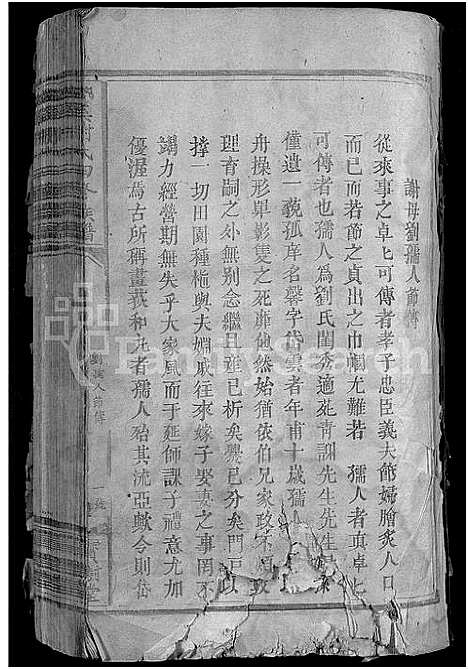 謝母劉孺人節傳
從來事之卓卓可傳者孝子忠臣義夫節婦膾炙人口
而已而若節之貞出之巾幗尤難若 孺人者真卓卜
可傳者也孺人為劉氏閨秀適苑青謝先生先生
僅遺一藐孤岸名馨字岱雲者年甫十歲孺人
舟操形單影隻之死靡他然始猶依伯兄家政不
理育嗣之外無別念繼且雖已析矣爨已分矣門戶以
撐一切田園種植與夫姻戚往來嫁子娶妻之事罔不
竭力經營期無失乎大家風而于延師課子禮意尤加
優渥為古所稱畫荻和丸者孺人殆其流亞歟今則岱
劉孺人節傳
FamilySearch